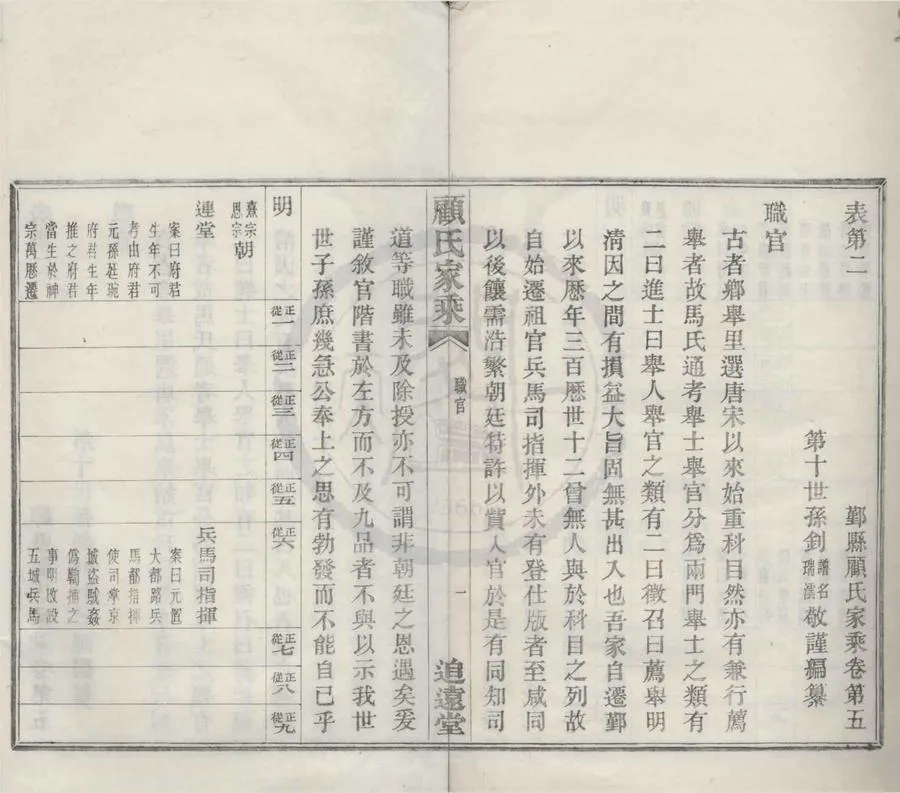 表第二 鄞縣顧氏家乘卷第五
第十世孫釗譜名瑞瀠敬謹編纂
職官
古者鄉舉里選唐宋以來始重科目然亦有兼行薦
舉者故馬氏通考舉士舉官分爲兩門舉士之類有
二曰進士曰舉人舉官之類有二曰徵召曰薦舉明
清因之間有損益大旨固無甚出入也吾家自遷鄞
以來歷年三百歷世十二曾無人與於科目之列故
自始遷祖官兵馬司指揮外未有登仕版者至咸同
以後饟需浩繁朝廷特許以貲入官於是有同知司
顧氏家乘 職官 一 追遠堂
道等職雖未及除授亦不可謂非朝廷之恩遇矣爰
謹敘官階書於左方而不及九品者不與以示我世
世子孫庶幾急公奉上之思有勃發而不能自已乎
明 正從一 正從二 正從三 正從四 正從五 正從六 正從七 正從八 正從九
熹宗思宗朝
連堂 兵馬司指揮
案曰府君
生年不可
考由府君
元孫廷琬
府君生年
推之府君
當生於神
宗萬曆遷
案曰元置
大都路兵
馬都指揮
使司掌京
城盜賊姦
僞鞫捕之
事明改設
五城兵馬